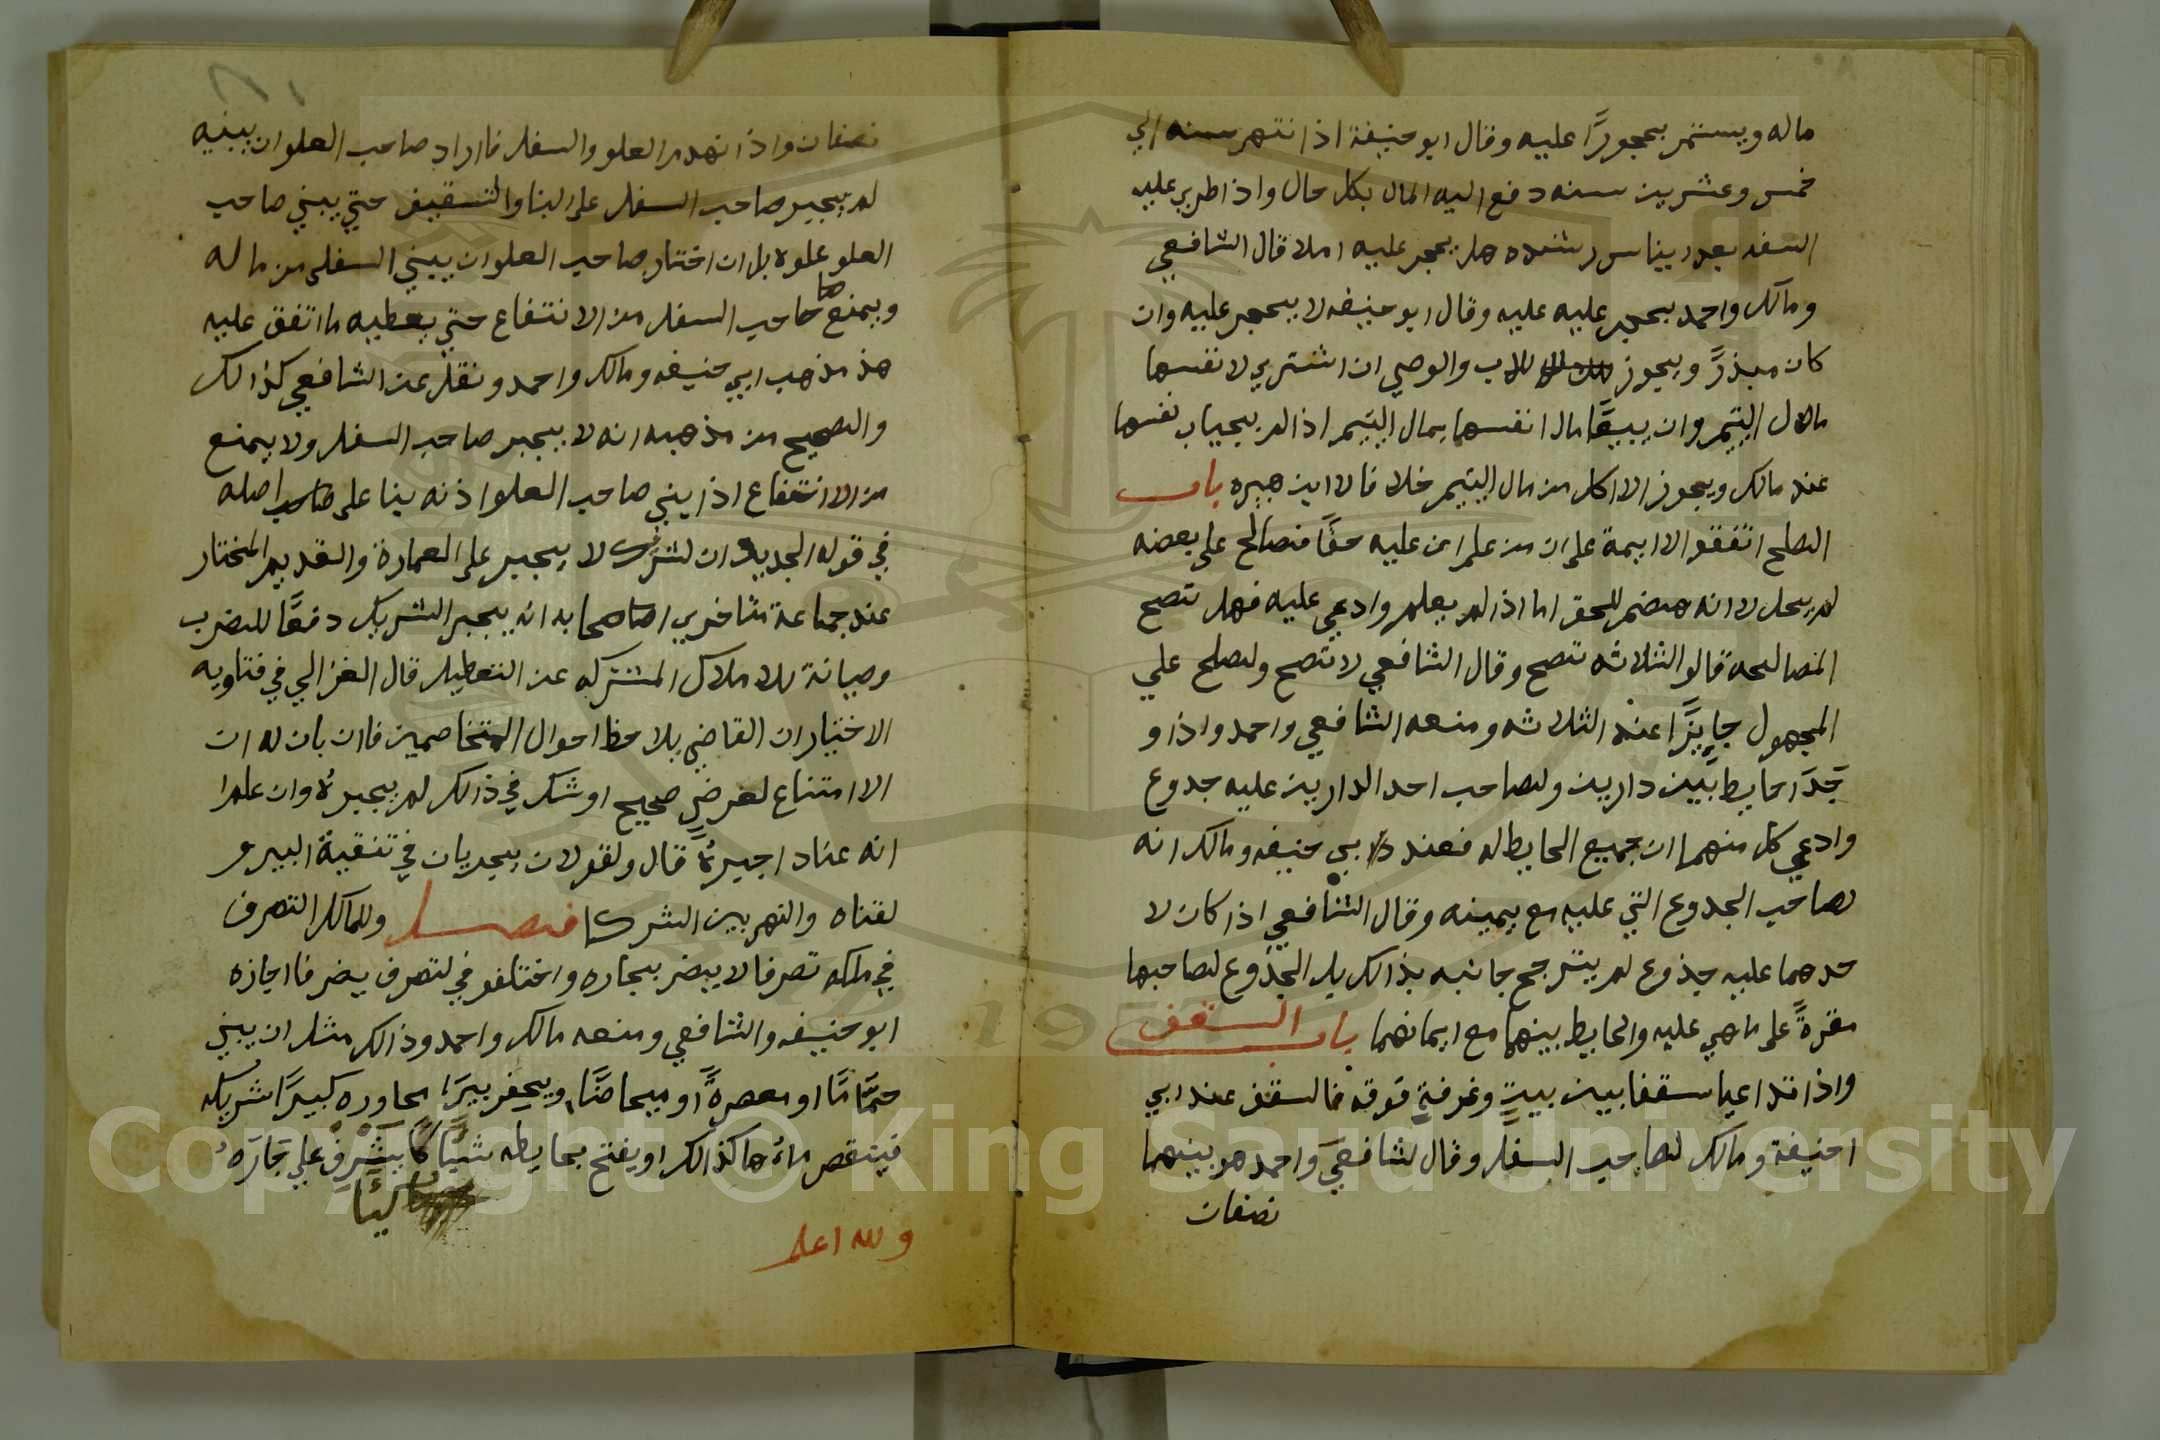 ماله ويستمر بمحجورًا عليه وقال ابو حنيفة اذا نتهى سنه الي
خمس وعشرين سنه دفع اليه المال بكل حال واذا طري عليه
السفه بعد ايناس رشده هل يحجر عليه املا قال الشافعي
ومالك واحمد يحجر عليه عليه وقال ابو حنيفه لا يحجر عليه وان
كان مبذرً ويجوز للاب والوصي ان اشتري لا نفسها
مالال اليتيم وان يبيعًا مال انفسهما بمال اليتيم اذا لم يحياب نفسها
عند مالك ويجوز الاكل من مال اليتيم خلا فا لابن هبيره باب
الصلح اتفقو الايمة على ان من علم ان عليه حقًا فصالح على بعضه
لم يحل لانه هضم للحق اما اذا لم يعلم وادعي عليه فهل تصح
المصالحه قالو الثلاثه تصح وقال الشافعي لا تصح ولصلح علي
المجهول جايزًا عند الثلاثه ومنعه الشافعي واحمد واذا و
جَدَ احايط بَين دارين ولصاحب احد الدارين عليه جدوع
وادعي كل منهما ان جميع الحايط له فعند لابي حنيفه ومالك انه
لصاحب الجدوع التي عليه مع يمينه وقال الشافعي اذا كان لا
حدهما عليه جذوع لم يترجح جانبه بذالك بل الجذوع لصاحبها
مقرةً على ما هي عليه والحايط بينهما مع ايمانهما باب السقف
واذا تداعيا سقفا بين بيتٍ وغرفةٍ فوقه فالسقف عند ابي
احنيفة ومالك لصاحب السفل وقال لشافعي واحمد هو بينهما
نصفان
نصفان واذا نهدم العلو والسفل فاراد صاحب العلو ان يبنيه
لم يجبر صاحب السفل على البنا والتسقيف حتي يبني صاحب
العلو علوه بل ان اختار صاحب العلو ان يبني السفلى من ماله
ويمنع صاحب السفل من الانتفاع حتي يعطيه ما اتفق عليه
هذ مذهب ابي حنيفه ومالك واحمد ونقل عن الشافعي كذالك
والصحيح من مذهبه انه لا يجبر صاحب السفل ولا يمنع
من الانتفاع اذا يبني صاحب العلو اذنه بنا على اصله
في قوله الجديد ان لشريك لا يجبر على العمارة والقديم المختار
عند جماعة متاخري اصحابه انه يجبر الشريك دفعًا للضرب
وصيانة للاملاك المشتركه عن التعطيل قال الغزالي في فتاويه
الاختيار ان القاضي يلاحظ احوال المتخاصمين فان بان له ان
الامتناع لغرضٍ صحيح اوشك في ذالك لم يجبرهُ وان علم ا
انه عناد اجبرهُ قال ولقولان يجريان في تنقية البير و
لقناه والنهر بين الشركا فصل وللمالك التصرف
في ملكه تصرفا لا يبضر بجاره واختلفو في لتصرف يضر فاجازه
ابو حنيفه والشافعي ومنعه مالك واحمد وذالك مثل ان يبني
حمَّامًا او معصرةً او مبحاضًا ويحفر بيرًا بجاوره كبيرًا شريكه
فينقص ماءُها كذالك او يفتح بحايطه شيًاكًا يَشْرِف علي جَارَهُ
والله اعلم